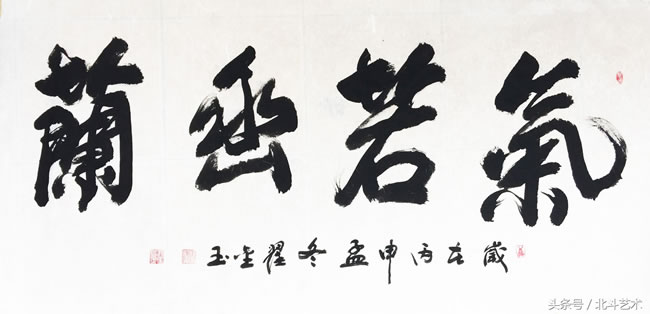 氣若幽蘭
歲在丙申孟冬翟生玉
头条号 / 北斗艺术